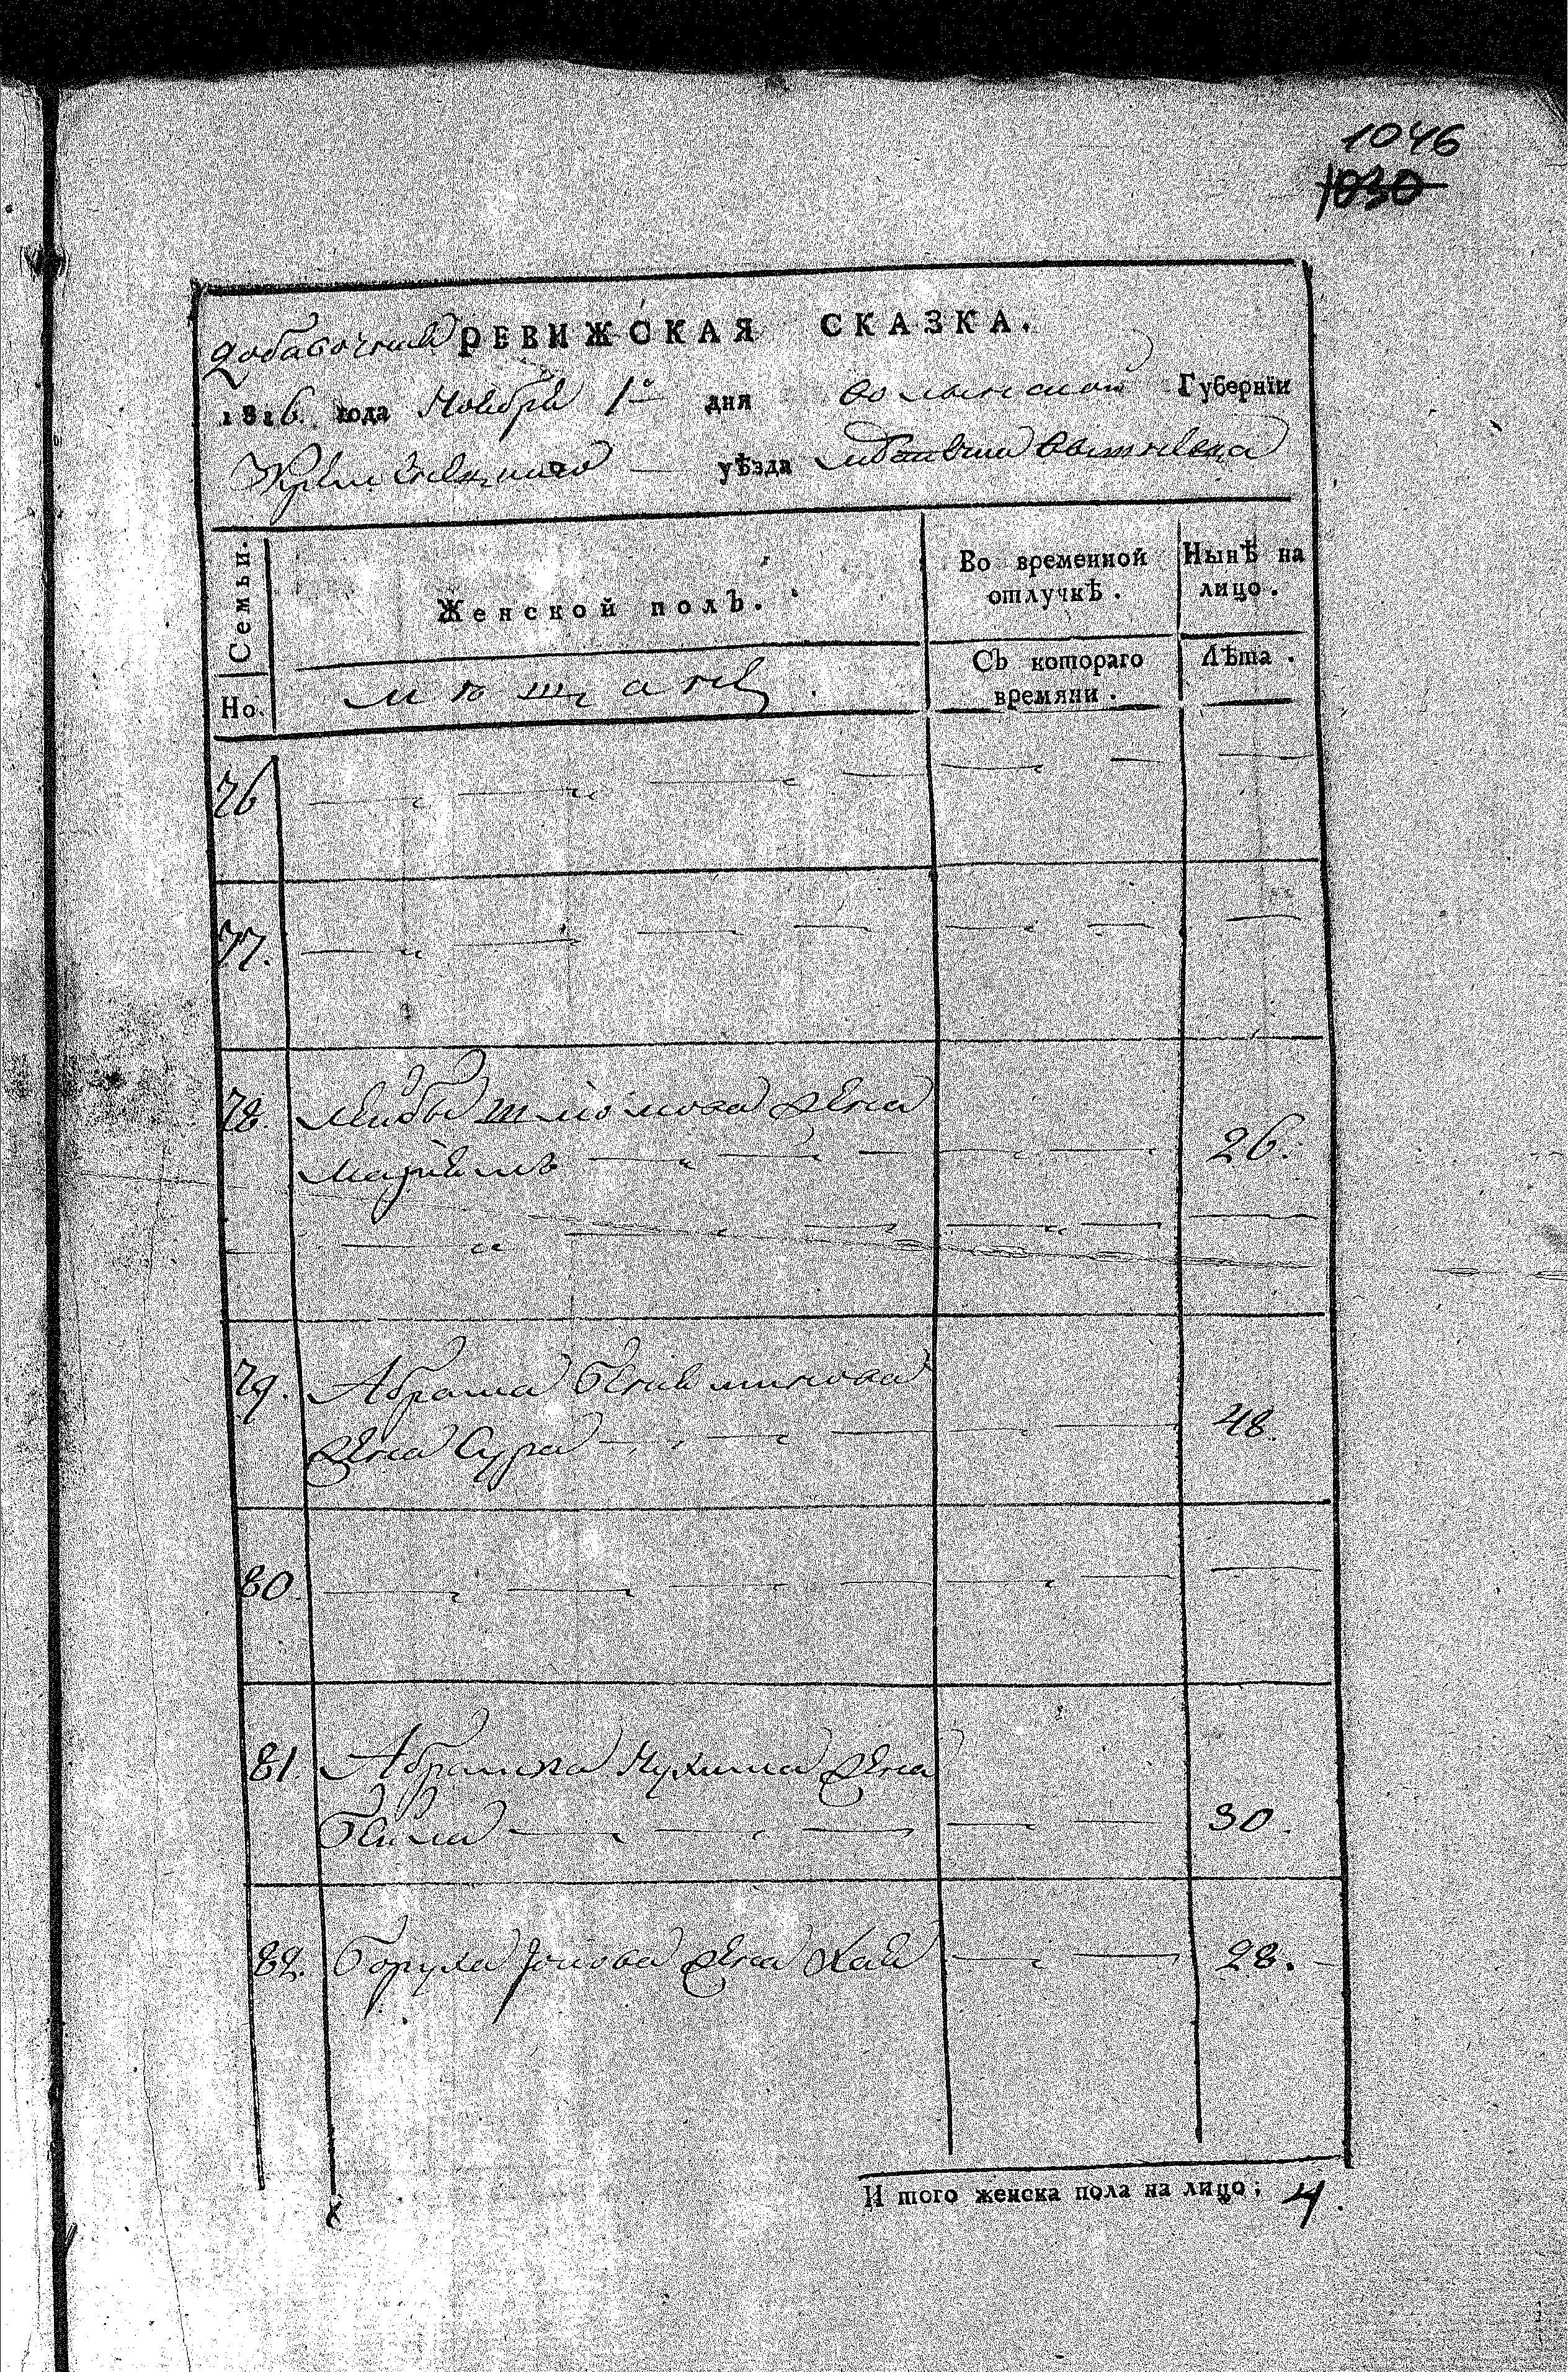 1046
1030
добавочная РЕВИЖСКАЯ СКАЗКА.
1816. года Ноября 1го дня волынской Губернїи
Кременецкаго уѣзда
Семьи. Женской полъ. Во временной отлучкѣ. Нынѣ на лицо.
Но. мѣщане Съ котораго времяни. Лѣта.
76
77.
78. Лейбы Шлiомова жена
Марiемъ 26.
79. Абрама Бенiяминова
жена Сура 48.
80.
81. Абрамка Нухима жена
Бейла 30.
82. Боруха Iонова жена Хая 28.
И того женска пола на лицо; 4.